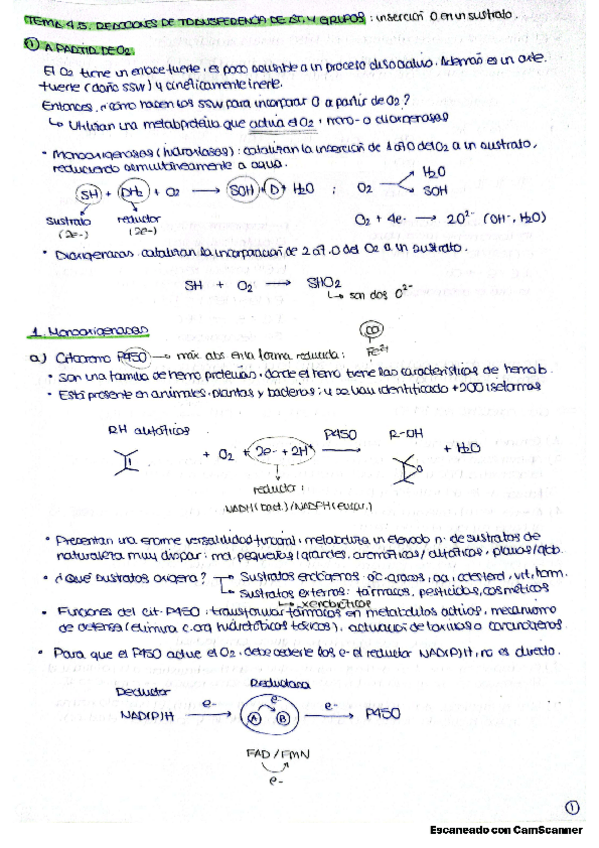 TEMA 4.5. REACCIONES DE TRANSFERENCIA DE AT. Y GRUPOS: inserción O en un sustrato.
① A PARTIR DE O2.
El O2 tiene un enlace fuerte, es poco asequible a un proceso disociativo. Además es un oxte.
fuerte (daño ssvv) y cinéticamente inerte.
Entonces, ¿cómo hacen los ssvv para incorporar O a partir de O2?
↳ Utilizan una metaloproteína que activa el O2, mono- o dioxigenasas
• Monooxigenasas (hidroxilasas): catalizan la inserción de 1 at O del O2 a un sustrato,
reduciendo at simultáneamente a agua.
SH + DH2 + O2 → SOH + D + H2O ; O2 H2O SOH
sustrato reductor
(2e-) (2e-)
O2 + 4e- → 2O2- (OH-, H2O)
• Dioxigenasas: catalizan la incorporación de 2 at. O del O2 a un sustrato.
SH + O2 → SHO2
↳ son dos O2-
1. Monooxigenasas
a) Citocromo P450 → máx abs en la forma reducida: CO Fe2+
• Son una familia de hemo proteínas, donde el hemo tiene las características de hemo b.
• Está presente en animales, plantas y bacterias; y se han identificado +200 isoformas
RH alifáticos + O2 + 2e- + 2H+ P450 → R-OH + H2O
reductor:
NADH (bact.) / NADPH (eucar.)
• Presentan una enorme versatilidad funcional, metaboliza un elevado nº de sustratos de
naturaleza muy dispar: mol. pequeñas/grandes, aromáticos/alifáticos, planas/glob.
• ¿Qué sustratos oxigena? Sustratos endógenos: ác. grasos, aa, colesterol, vit, horm.
Sustratos externos: fármacos, pesticidas, cosméticos
↳ xenobióticos
• Funciones del cit. P450: transformar fármacos en metabolitos activos, mecanismo
de defensa (elimina c. org hidrofóbicos tóxicos), activación de toxinas o carcinógenos.
• Para que el P450 active el O2, debe cederle los e- el reductor NAD(P)H, no es directo.
Reductor Reductasa
NAD(P)H e- → A e- B e- → P450
FAD / FMN
e-
1
Escaneado con CamScanner